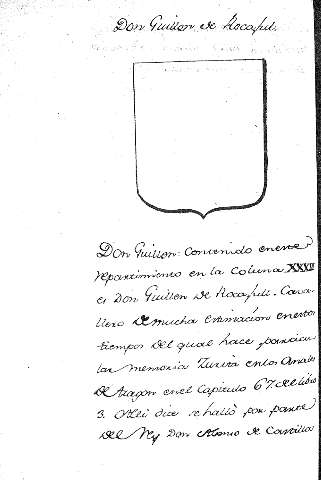 Don Guillon de Rocafull.
Don Guillon: Contenido en este
repartimiento en la Coluna XXXII
es Don Guillon de Rocafull. Cava-
llero de mucha estimacion en estos
tiempos del qual hace particu-
lar memoria Zurita en los Anales
de Aragon en el Capitulo 67 de el libro
3. Alli dice se halló por parte
del Rey Don Alonso de Castilla